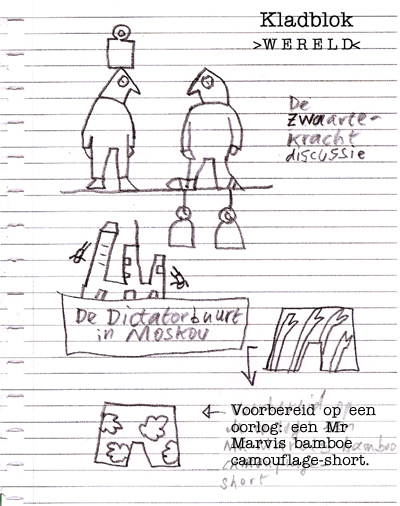 Kladblok
>WERELD<
De
zwaarte-
kracht
discussie
De Dictatorbuurt
in Moskou
Voorbereid op een
oorlog: een Mr
Marvis bamboe
camouflage-short.
short